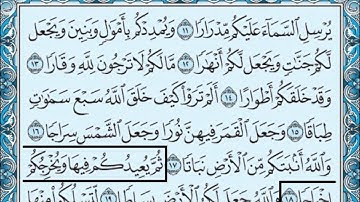 يُرْسِلِ السَّمَآءَ عَلَيْكُم مِّدْرَارًا ١١ وَيُمْدِدْكُم بِأَمْوَٰلٍ وَبَنِينَ وَيَجْعَل
لَّكُمْ جَنَّٰتٍ وَيَجْعَل لَّكُمْ أَنْهَٰرًا ١٢ مَّا لَكُمْ لَا تَرْجُونَ لِلَّهِ وَقَارًا ١٣
وَقَدْ خَلَقَكُمْ أَطْوَارًا ١٤ أَلَمْ تَرَوْا۟ كَيْفَ خَلَقَ ٱللَّهُ سَبْعَ سَمَٰوَٰتٍ
طِبَاقًا ١٥ وَجَعَلَ ٱلْقَمَرَ فِيهِنَّ نُورًا وَجَعَلَ ٱلشَّمْسَ سِرَاجًا ١٦
وَٱللَّهُ أَنۢبَتَكُم مِّنَ ٱلْأَرْضِ نَبَاتًا ١٧ ثُمَّ يُعِيدُكُمْ فِيهَا وَيُخْرِجُكُمْ
إِخْرَاجًا ١٨ وَٱللَّهُ جَعَلَ لَكُمُ ٱلْأَرْضَ بِسَاطًا ١٩ لِّتَسْلُكُوا۟ مِنْهَا